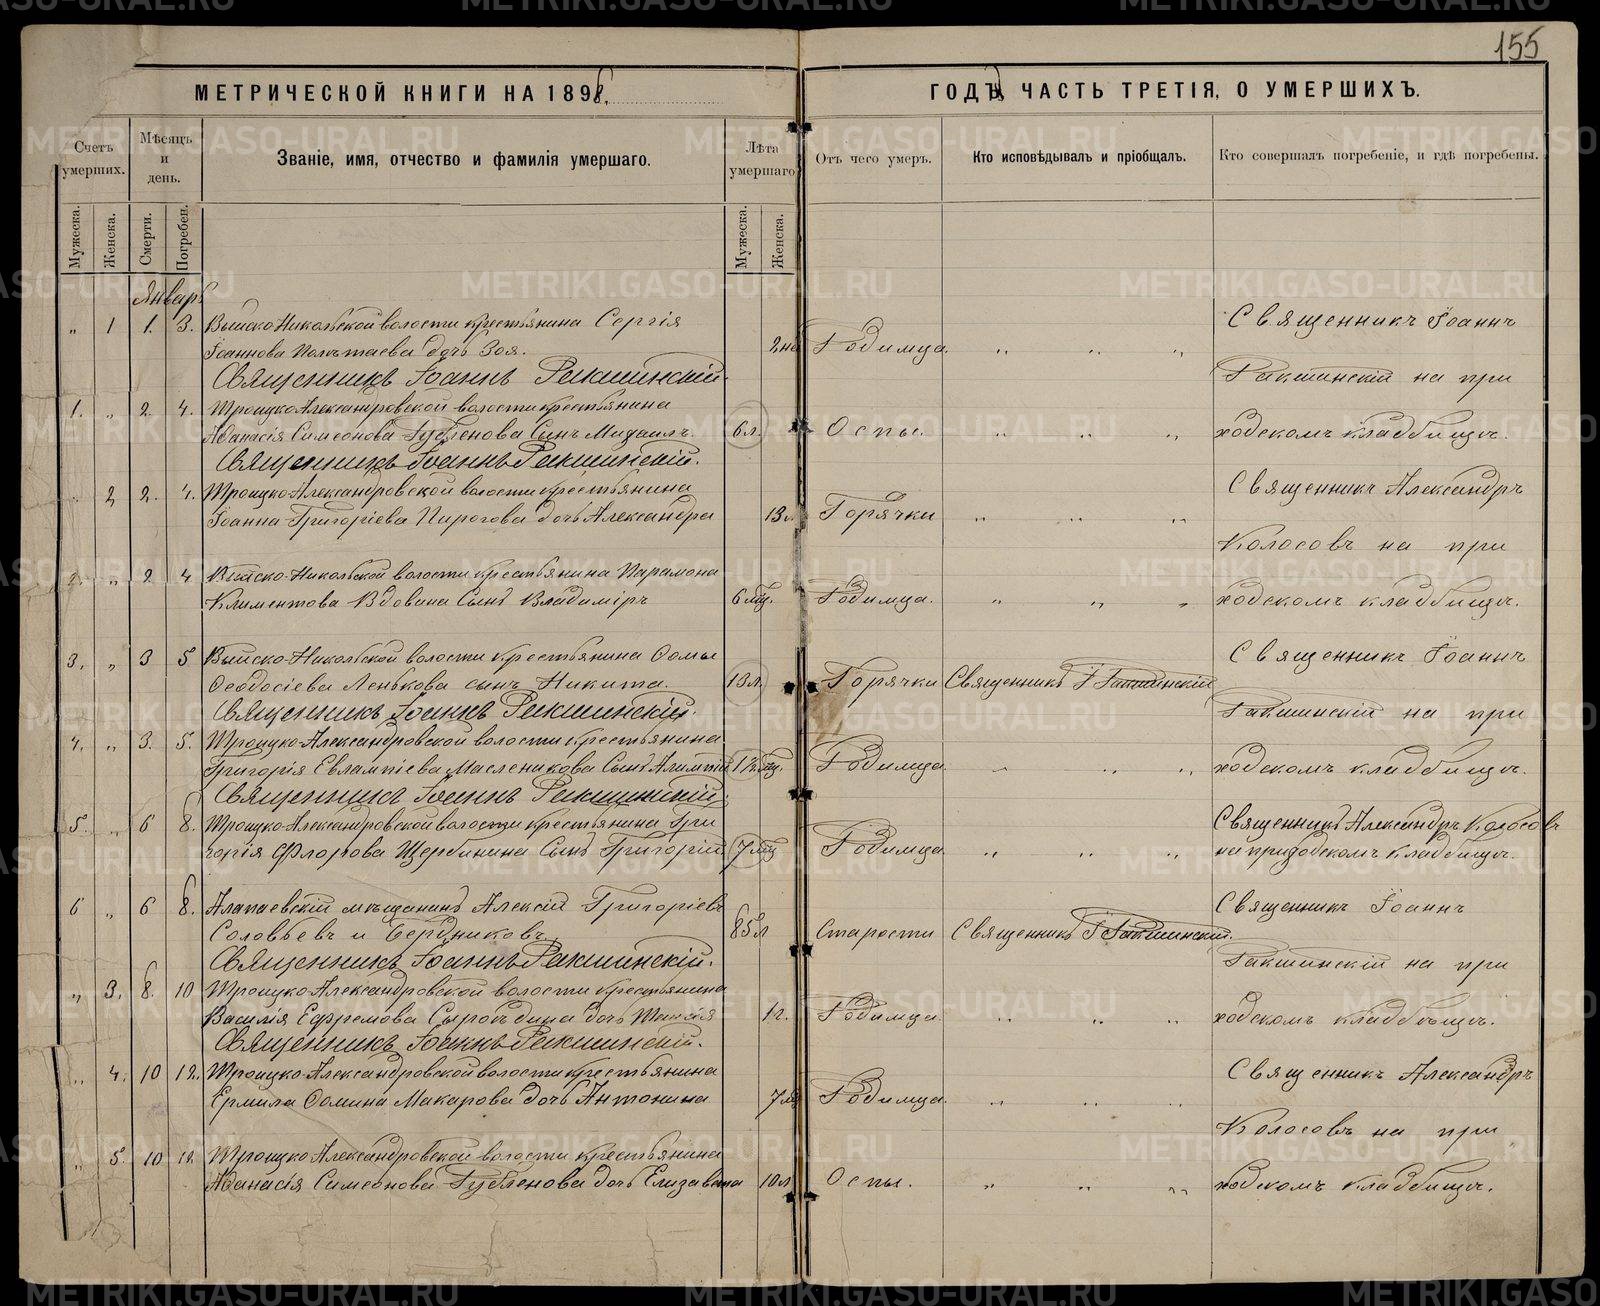 155
МЕТРИЧЕСКОЙ КНИГИ НА 1898, ГОДЪ ЧАСТЬ ТРЕТІЯ, О УМЕРШИХЪ.
Счетъ умерших.
Мѣсяцъ и день.
Званіе, имя, отчество и фамилія умершаго.
Лѣта умершаго
Отъ чего умеръ.
Кто исповѣдывалъ и пріобщалъ.
Кто совершалъ погребеніе, и гдѣ погребены.
Мужеска. Женска. Смерти. Погребен. Мужеска. Женска.
Январь
„ 1 1. 3. Выйско-Никольской волости крестьянина Сергія Священникъ Іоаннъ
Іоаннова дочь Зоя. 2 нд Родимца. „ „ „
Священникъ Іоаннъ Ракшинскій. Ракшинскій на при
1. „ 2. 4. Троицко-Александровской волости крестьянина
Аѳанасія Симеонова Губленова Сынъ Михаилъ. 6 л. Оспы. „ „ „ ходскомъ кладбищѣ.
Священникъ Іоаннъ Ракшинскій.
„ 2 2. 4. Троицко-Александровской волости крестьянина Священникъ Александръ
Іоанна Григоріева Пирогова дочь Александра 13 л Горячки „ „ „
Колосовъ на при
2. „ 2 4 Выйско-Никольской волости крестьянина Парамона
Климентова Вдовина Сынъ Владиміръ 6 мц. Родимца. „ „ „ ходскомъ кладбищѣ.
3. „ 3 5 Выйско-Никольской волости крестьянина Ѳомы Священникъ Іоаннъ
Ѳеодосіева Ленькова сынъ Никита. 13 л. Горячки Священникъ І Ракшинскій
Священникъ Іоаннъ Ракшинскій. Ракшинскій на при
4. „ 3. 5. Троицко-Александровской волости крестьянина
Григорія Евлампіева Масленикова Сынъ мц. Родимца „ „ „ ходскомъ кладбищѣ.
Священникъ Іоаннъ Ракшинскій.
5. „ 6 8. Троицко-Александровской волости крестьянина Гри Священникъ Александръ Колосовъ
горія Флорова Щербинина Сынъ Григорій. 7 мц Родимца „ „ „ на приходскомъ кладбищѣ.
6 „ 6 8. Алапаевскій мѣщанинъ Алексій Григоріевъ Священникъ Іоаннъ
Соловьевъ и Бердниковъ 85 л Старости Священникъ І Ракшинскій.
Священникъ Іоаннъ Ракшинскій. Ракшинскій на при
„ 3. 8. 10 Троицко-Александровской волости крестьянина
Василія Ефремова Сыроѣдина дочь Таисія 1 г. Родимца „ „ „ ходскомъ кладбѣщѣ.
Священникъ Іоаннъ Ракшинскій.
„ 4. 10 12. Троицко-Александровской волости крестьянина Священникъ Александръ
Ермила Ѳомина Макарова дочь Антонина 7 мц Родимца. „ „ „
Колосовъ на при
„ 5. 10 12 Троицко-Александровской волости крестьянина
Аѳанасія Симеонова Губленова дочь Елизавета 10 л Оспы. „ „ „ ходскомъ кладбищѣ.
METRIKI.GASO-URAL.RU